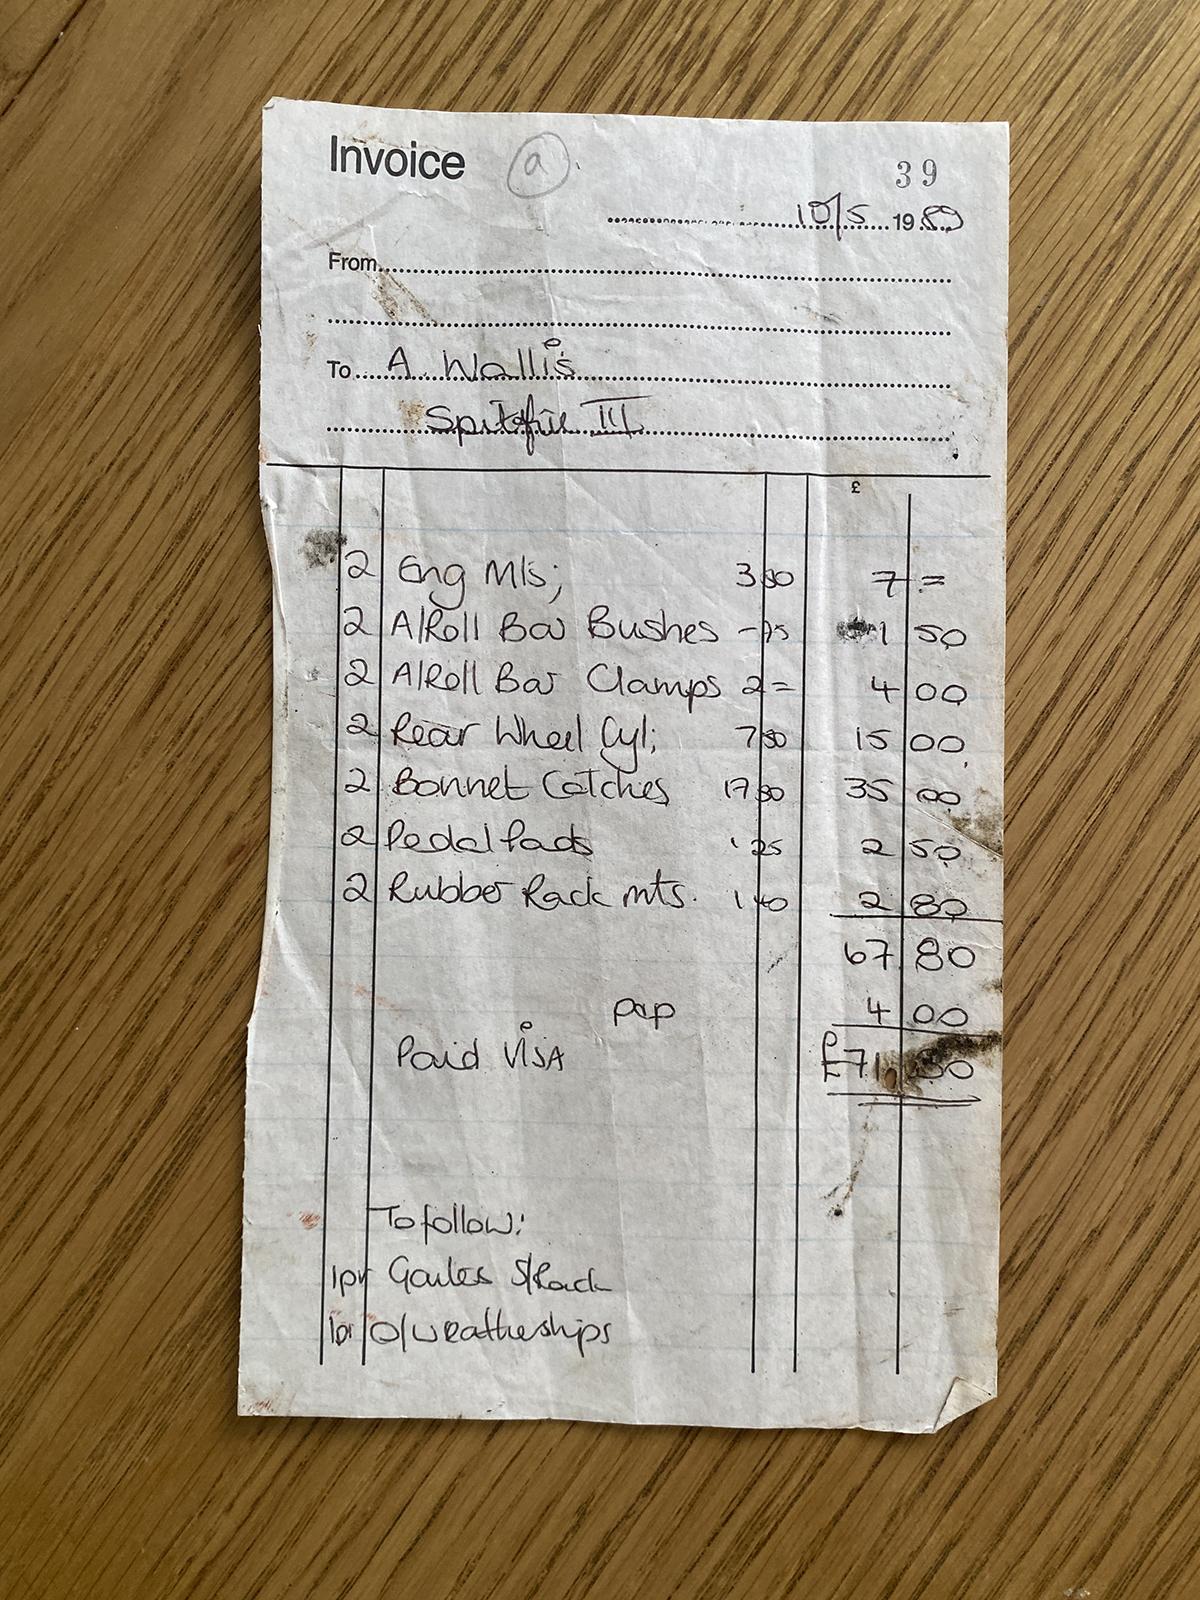 Invoice a
39
10/5 1989
From
To A. Wallis
Spitfire III
£
2 Eng Mts; 3 50 7 =
2 A/Roll Bar Bushes - 75 1 50
2 A/Roll Bar Clamps 2 = 4 00
2 Rear Wheel Cyl; 7 50 15 00
2 Bonnet Catches 17 50 35 00
2 Pedal Pads 1 25 2 50
2 Rubber Rack mts. 1 40 2 80
67 80
pap 4 00
Paid VISA £71.80
To follow:
1pr Gaites S/Rack
1pr O/weatherships